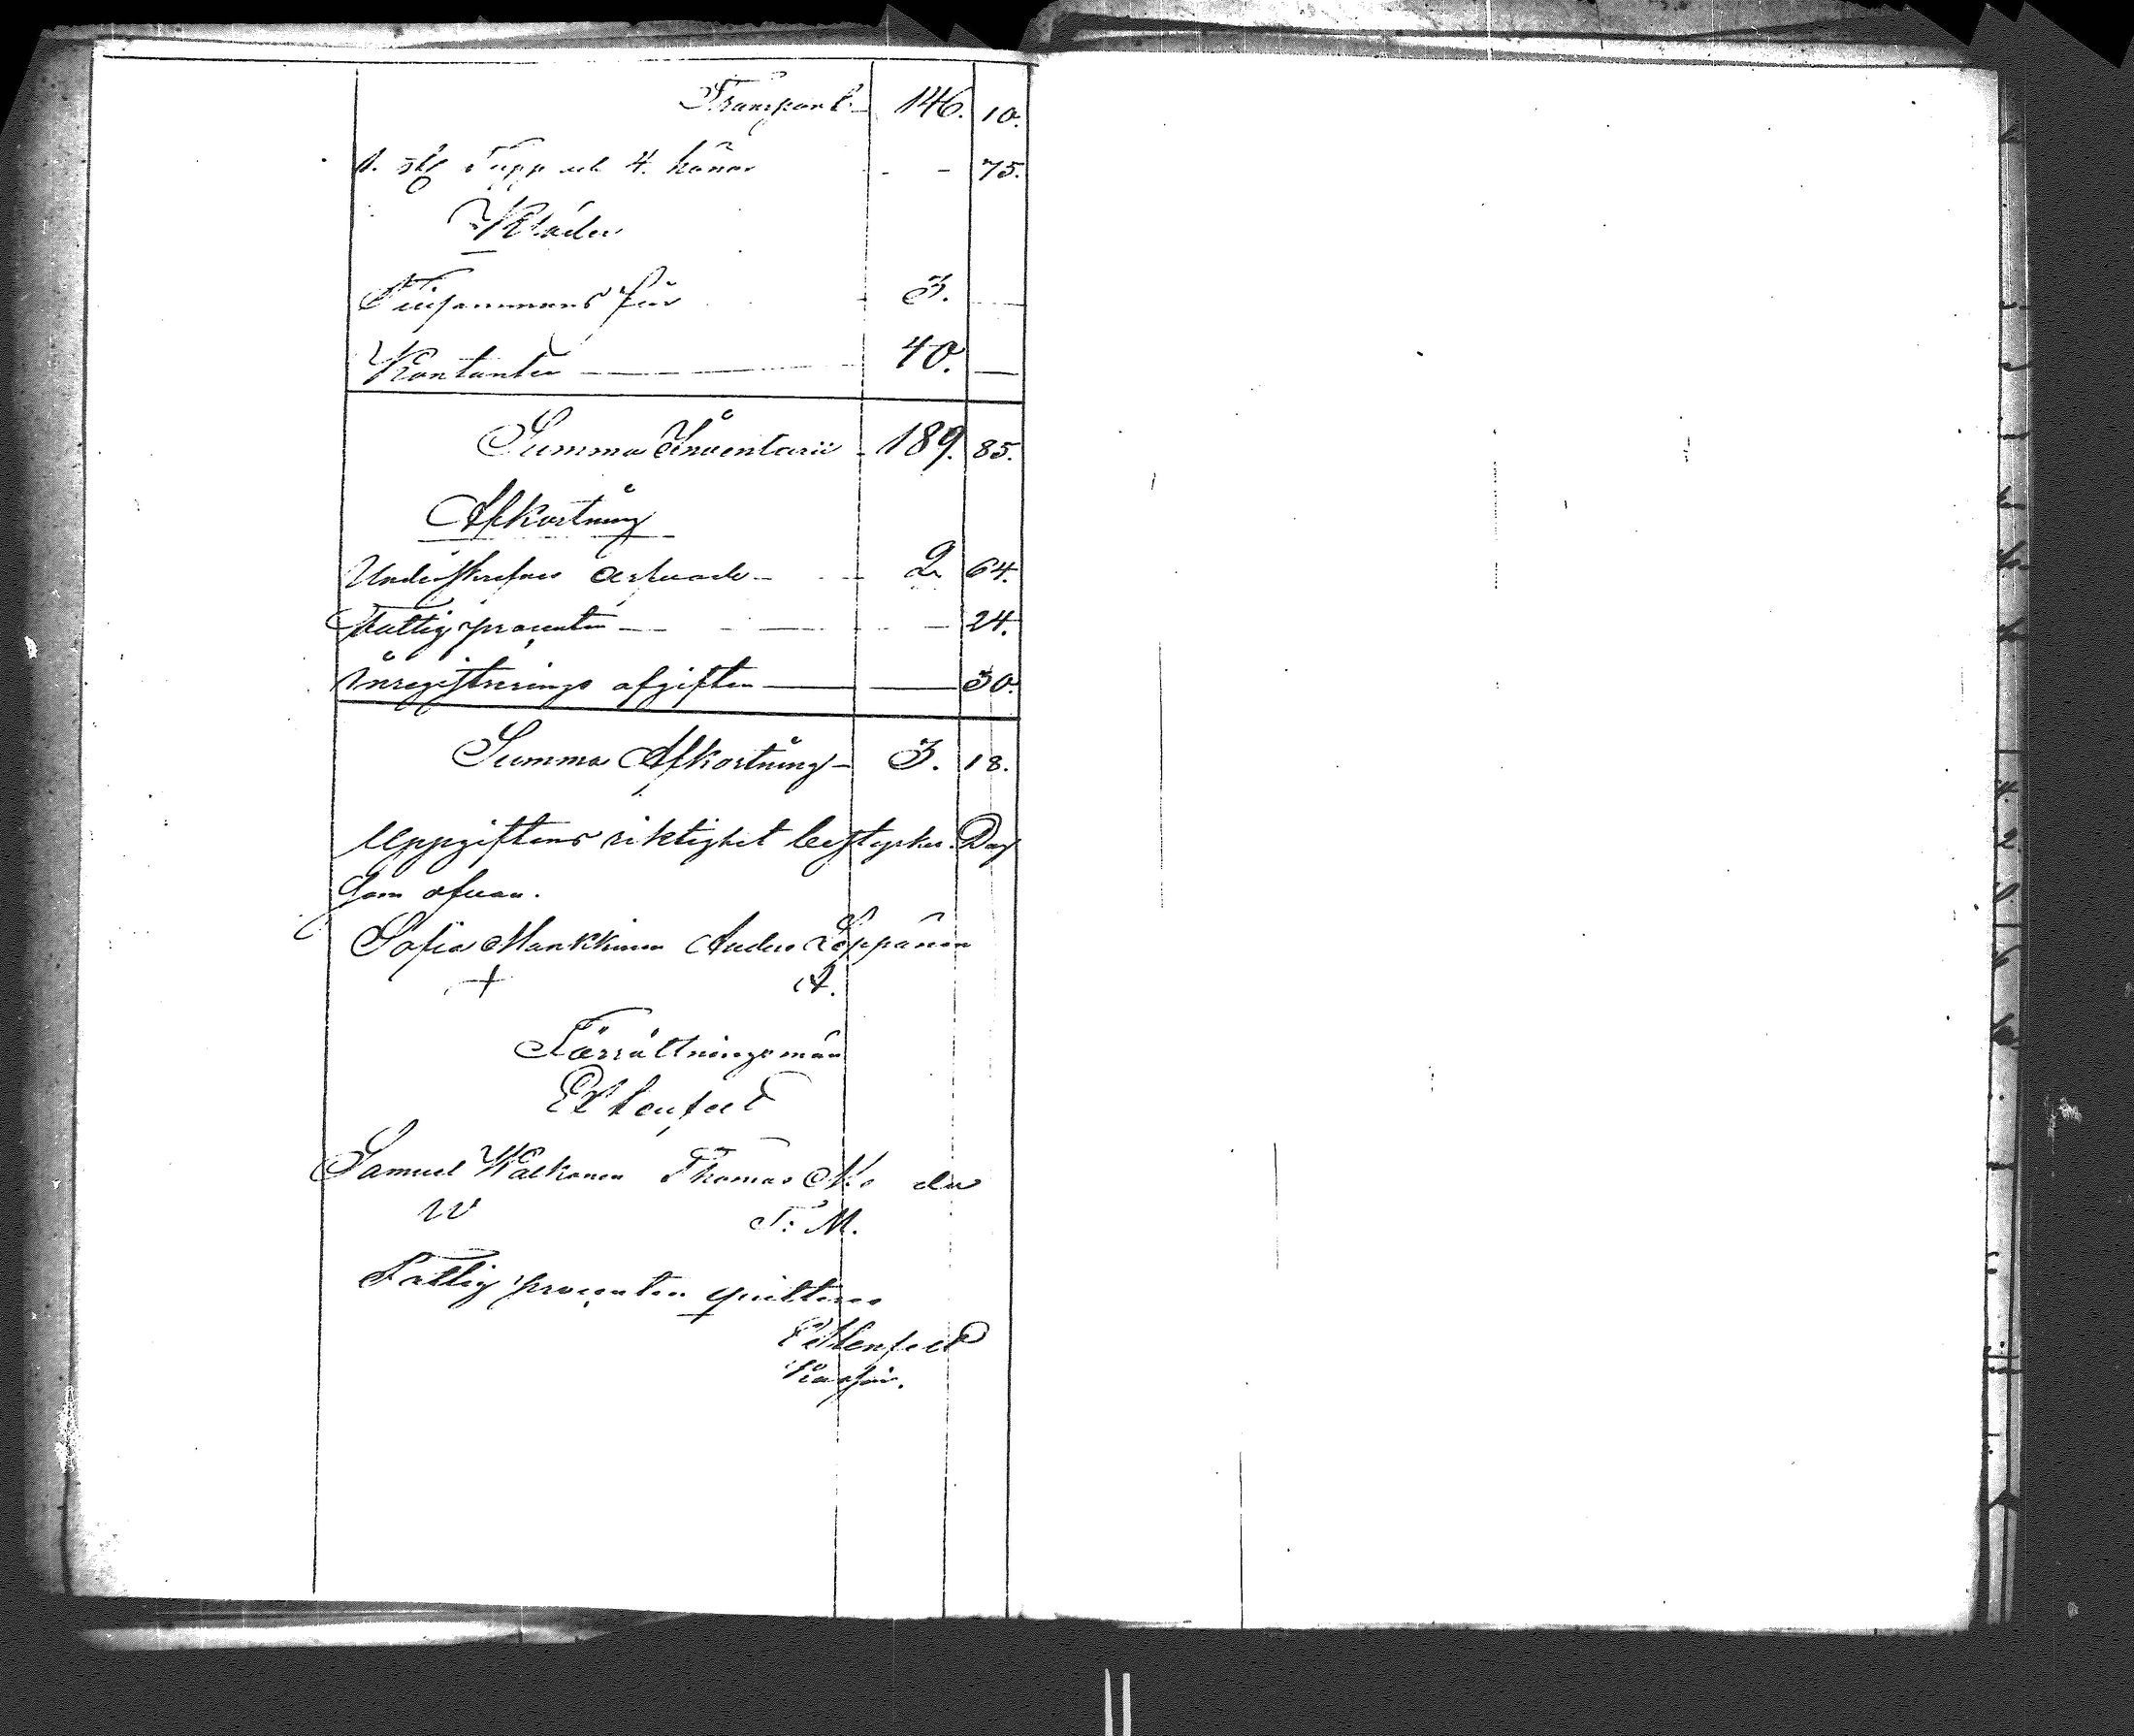 Transport 146. 10.
1. st Tupp och 4. hönor — 75.
Kläder
Tillsammans för 3. —
Kontanter 40. —
Summa Inventarii 189. 85.
Afkortning
Underskrefnes arfvode 2 64.
Fattig procenten — 24.
Inregistrerings afgiften — 30.
Summa Afkortning 3. 18.
Uppgiftens riktighet bestyrker. Dag
som ofvan.
Sofia Markkinen Anders Leppänen
+ A.
Förrättningsmän
Samuel Walkonen Thomas
W T: M.
Fattig procenten quitteras
Kassör.